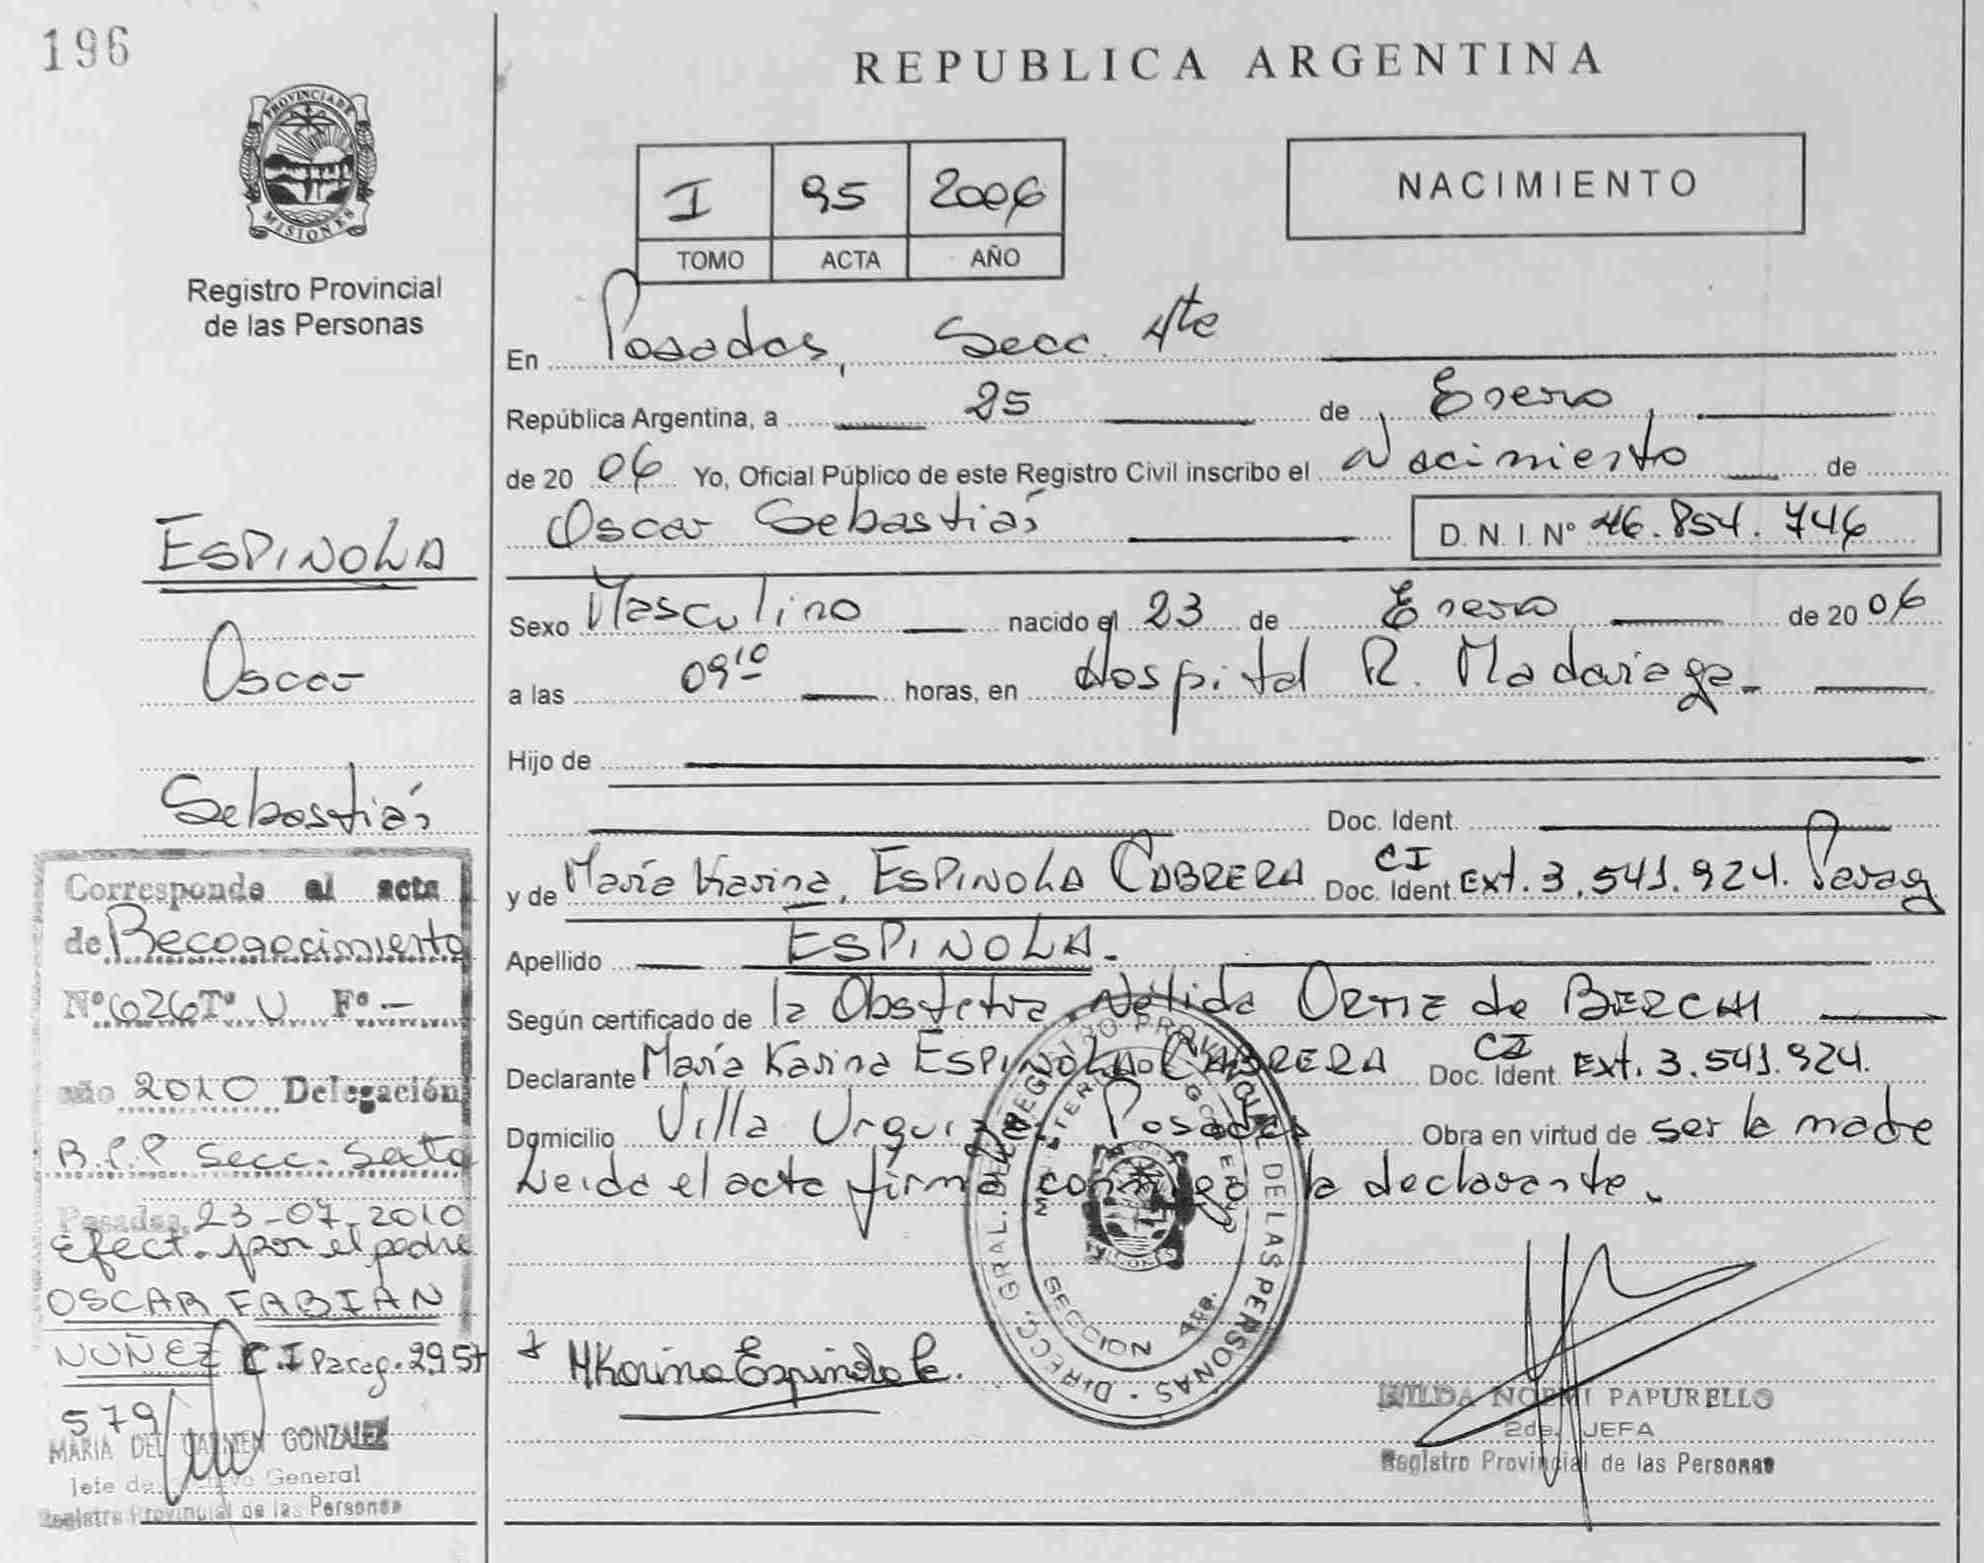 196
PROVINCIA DE
MISIONES
Registro Provincial
de las Personas
ESPINOLA
Oscar
Sebastián
Corresponde al acta
de Reconocimiento
Nº 626 Tº V Fº -
año 2010 Delegación
R.P.P Secc. Sexta
Posadas, 23-07-2010
Efect. por el padre
OSCAR FABIÁN
NUÑEZ C.I Parag. 2.95
579
MARIA DEL CARMEN GONZALEZ
Jefe de General
Registro Provincial de las Personas
REPUBLICA ARGENTINA
I 95 2006
TOMO ACTA AÑO
NACIMIENTO
En Posadas, Secc. 4ta
República Argentina, a 25 de Enero
de 2006 Yo, Oficial Público de este Registro Civil inscribo el Nacimiento de
Oscar Sebastián D. N. I. Nº 46.854.746
Sexo Masculino nacido el 23 de Enero de 2006
a las 09 10 horas, en Hospital R. Madariaga
Hijo de
Doc. Ident.
y de María Karina, ESPINOLA CABRERA CI Doc. Ident. Ext. 3.541.924. Parag
Apellido ESPINOLA.
Según certificado de la Obstetra Nélida ORTIZ de BERCHI
Declarante María Karina ESPINOLA CABRERA CI Doc. Ident. Ext. 3.541.924.
Domicilio Villa Urquiza Posadas Obra en virtud de ser la madre
Leida el acta firma conmigo la declarante.
DIRECC. GRAL. DEL REGISTRO PROVINCIAL DE LAS PERSONAS
MINISTERIO DE GOBIERNO
SECCION 4ta.
MKarina Espinola C.
HILDA NOEMI PAPURELLO
2da. JEFA
Registro Provincial de las Personas